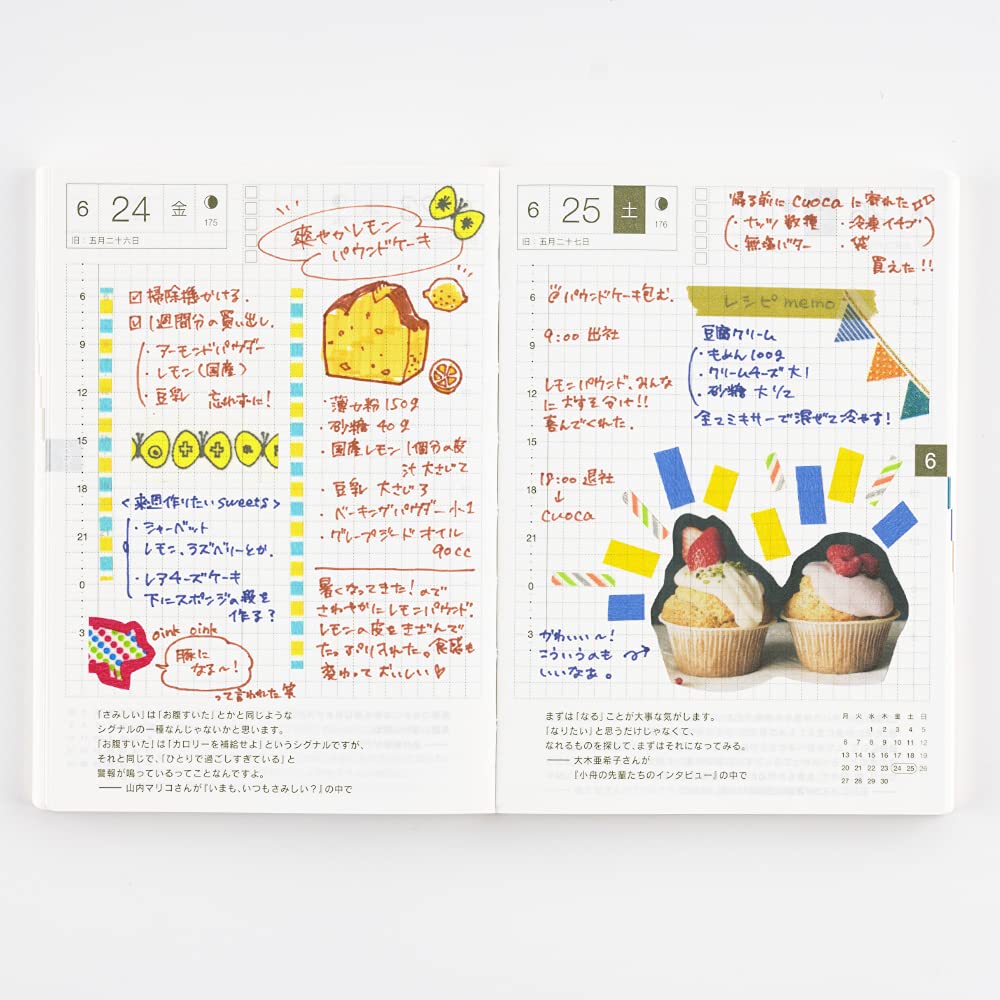 6 24 金 175
旧：五月二十六日
爽やかレモン
パウンドケーキ
6
9
12
15
18
21
0
3
☑掃除機かける.
☑1週間分の買い出し.
・アーモンドパウダー
・レモン(国産)
・豆乳 忘れずに!
<来週作りたいsweets>
・シャーベット
レモン、ラズベリーとか.
・レアチーズケーキ
下にスポンジの段を
作る?
oink oink
豚に
なる〜!
って言われた笑
・薄力粉150g
・砂糖 40g
・国産レモン1個分の皮
汁 大さじ2
・豆乳 大さじ3
・ベーキングパウダー 小1
・グレープシードオイル
90cc
暑くなってきた!ので
さわやかにレモンパウンド.
レモンの皮をきざんで
たっぷり入れた。食感も
変わっておいしい♡
「さみしい」は「お腹すいた」とかと同じような
シグナルの一種なんじゃないかと思います。
「お腹すいた」は「カロリーを補給せよ」というシグナルですが、
それと同じで、「ひとりで過ごしすぎている」と
警報が鳴っているってことなんですよ。
—— 山内マリコさんが『いまも、いつもさみしい？』の中で
6 25 土 176
旧：五月二十七日
帰る前にcuocaに寄れた
・ナッツ数種 ・冷凍イチゴ
・無塩バター ・袋
買えた!!
6
9
12
15
18
21
0
3
@パウンドケーキ包む.
9:00 出社
レモンパウンド、みんな
に大すそ分け!!
喜んでくれた.
18:00 退社
↓
cuoca
レシピmemo
豆腐クリーム
・もめん100g
・クリームチーズ大1
・砂糖 大1/2
全てミキサーで混ぜて冷やす!
6
かわいい〜!
こういうのも
いいなぁ。
まずは「なる」ことが大事な気がします。
「なりたい」と思うだけじゃなくて、
なれるものを探して、まずはそれになってみる。
—— 大木亜希子さんが
『小舟の先輩たちのインタビュー』の中で
月 火 水 木 金 土 日
1 2 3 4 5
6 7 8 9 10 11 12
13 14 15 16 17 18 19
20 21 22 23 24 25 26
27 28 29 30